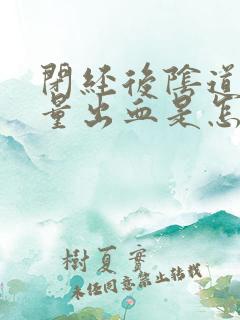 閉經後陰道
量出血是怎
樹夏實
未經同意禁止转载